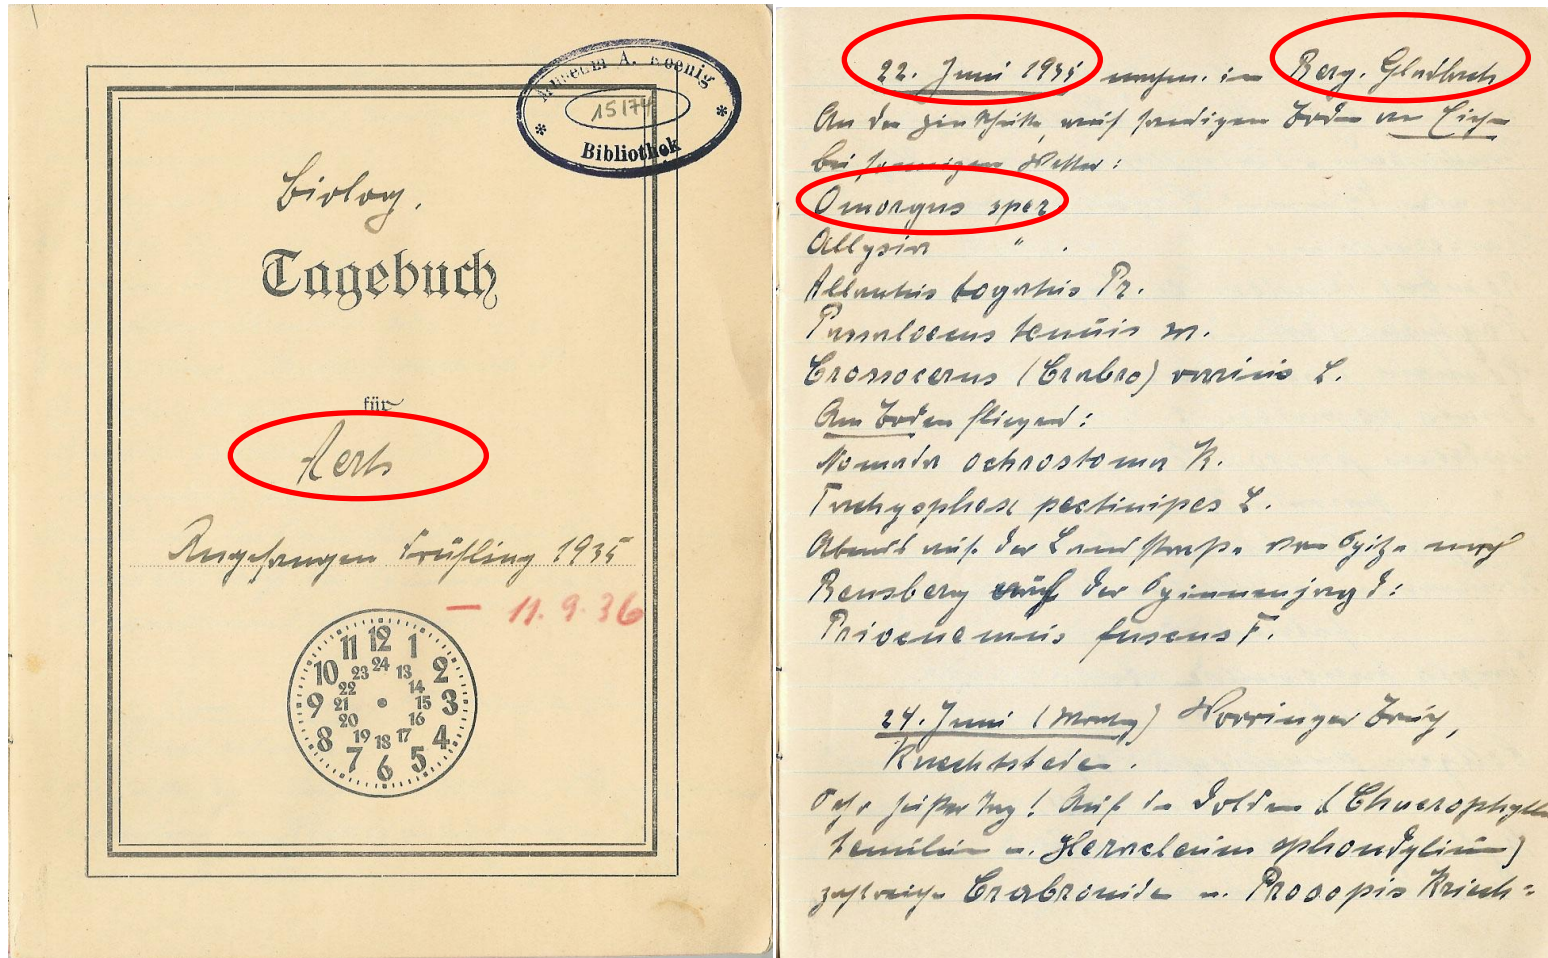 Museum A. Koenig
15174
Bibliothek
Biolog.
Tagebuch
für
Aerts
Angefangen Frühling 1935
— 11. 9. 36
12 1 2 3 4 5 6 7 8 9 10 11
24 13 14 15 16 17 18 19 20 21 22 23
22. Juni 1935 morgens in Berg. Gladbach
An der auf sandigem Boden
bei sonnigem Wetter:
Omorgus sper.
Allysia " .
Allantus togatus Pz.
Passaloecus tenuis M.
Crossocerus (Crabro) varius L.
Am Boden fliegend:
Nomada ochrostoma K.
Tachysphex pectinipes L.
Abends auf der Landstraße von Spitze nach
Bensberg auf der Spinnenjagd:
Priocnemis fuscus F.
24. Juni (Montag) Worringer Bruch,
Knechtsteden.
Sehr heißer Tag! Auf den Dolden (Chaerophyllum
temulum u. Heracleum sphondylium)
zahlreiche Crabroniden u. Prosopis Kriech=